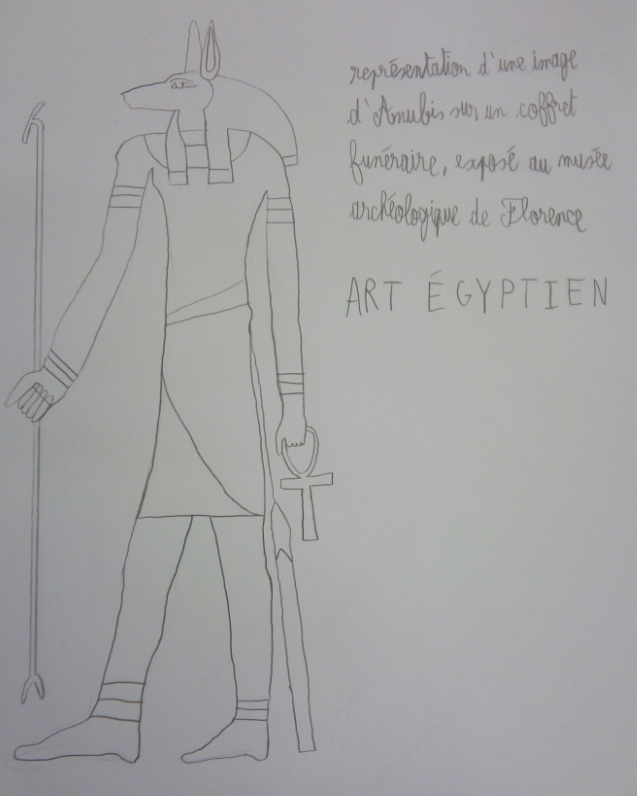 représentation d'une image
d'Anubis sur un coffret
funéraire, exposé au musée
archéologique de Florence
ART ÉGYPTIEN